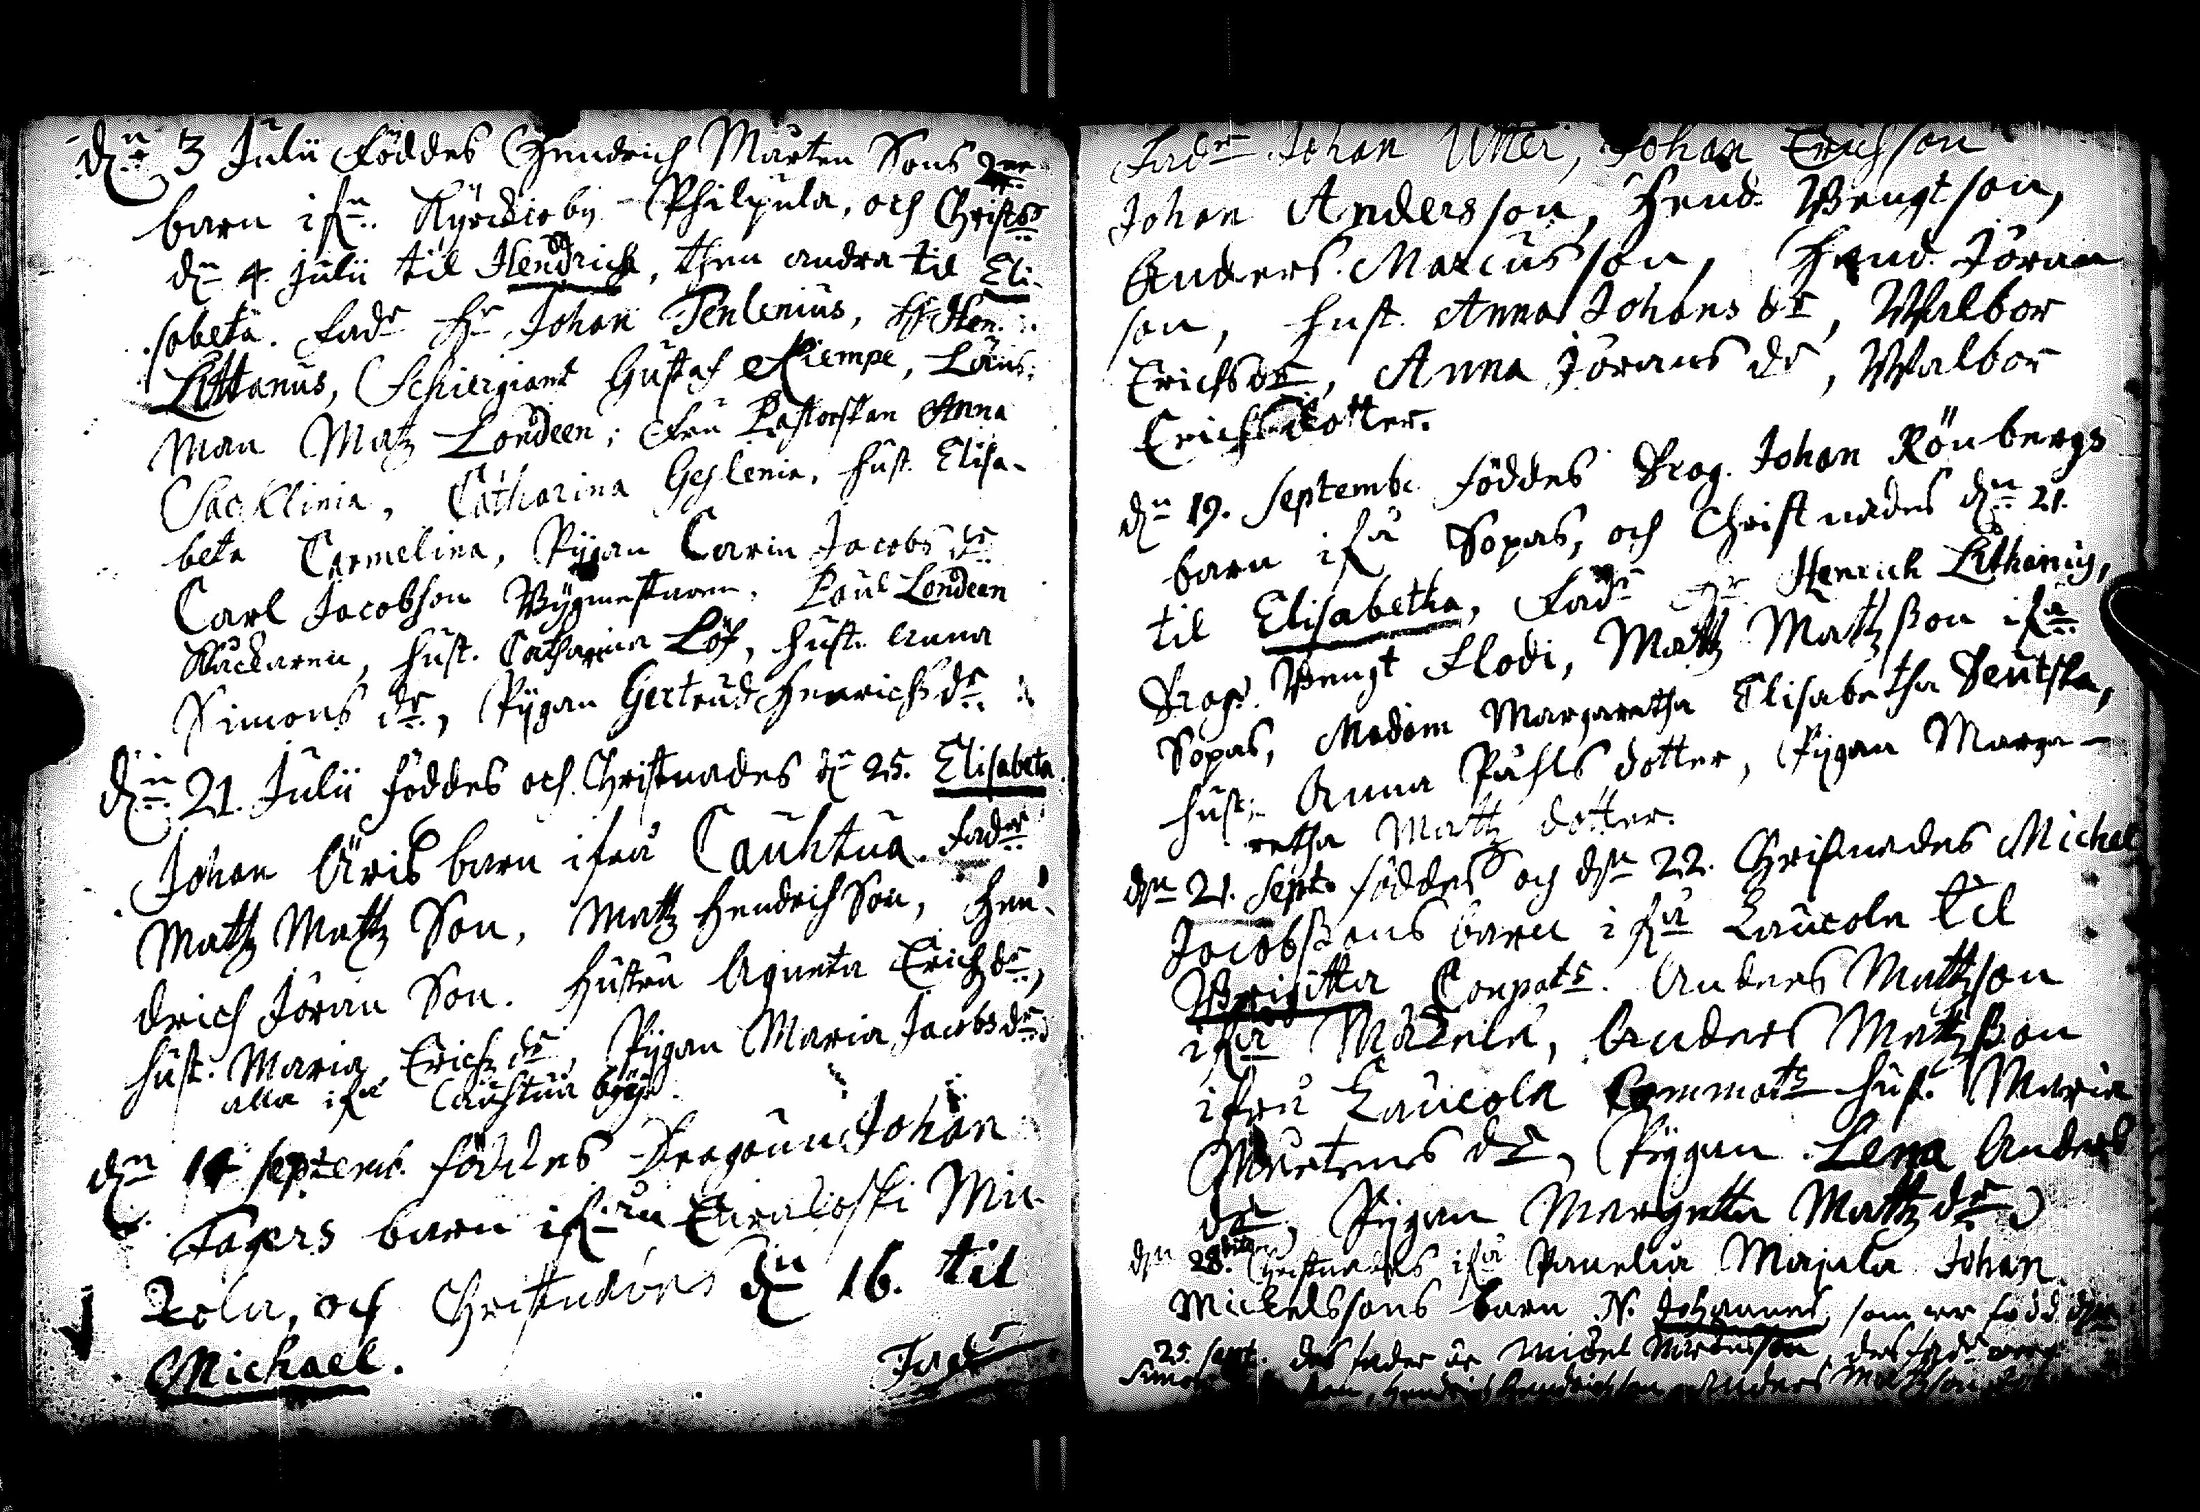 dn 3 Julii föddes Hendrich Mårten Sons 2ne
barn ifn. Kyrckioby Philpula, och Christs
dn 4 Julii til Hendrich, then andra til Eli-
sabeta. fadr Hr Johan Tenlenius, Hr Hen.
Littanus, Schiergiant Gustaf Kiempe, Läns-
man Matz Londeen; Fru Pastorskan Anna
Sacklinia, Catharina Geslenia, hust. Elisa-
beta Carmelina, Pÿgan Carin Jacobs dr
Carl Jacobson Bygmestaren, Paul Londeen
hust. Catharina Löf, hust. Anna
Simons dr, Pÿgan Gertrud Henrichs dr.
dn 21. Julii föddes och Christnades dn 25. Elisabeta
Johan Äris barn ifrå Cauhtua. fadr
Matz Matz Son, Matz Hendrich Son, Hen-
drich Jöran Son. Hustru Agneta Erichs dr,
hust. Maria Erichs dr, Pÿgan Maria Jacobs dr
alla ifrå Cauhtua
dn 14 septemb. föddes Dragoun Johan
Fagers barn ifrån Mic-
kola, och Christnades dn 16. til
Michael.
Fadr
Fadr Johan Utter, Johan Erichsson
Johan Andersson, Hend. Bengtson,
Anders Marcusson, Hend. Jöran
son, hust. Anna Johans dr, Walbor
Erichs dr, Anna Jörans dr, Walbor
Erichsdotter.
dn 19. Septemb. föddes Drag. Johan Rönbergs
barn ifrå Sopas, och Christnades dn 21.
til Elisabetha, Fadr Hr Henrich Lithanius,
Drag. Bengt Flodi, Matz Matzson ifrå
Sopas, Madam Margaretha Elisabetha Deutska,
hust. Anna Påhls dotter, Pÿgan Marga-
retha Matz dotter.
dn 21. Sept. föddes och dn 22. Christnades Michel
Jacobsons barn ifrå Laucola til
Brigitta Conpats. Anders Mattson
ifrå Mäkelä, Anders Matzson
ifrå Laucola Commats hust. Maria
Mårtens dr, Pÿgan Lena Anders
dr, Pÿgan Margetta Mattz dr
dn 28. Christnades ifrå Panelia Majula Johan
Mickelssons barn N. Johannes, som är född dn
25. sept. des fader är Michel des fadr
Hendrich Hendrichson Anders Matzson